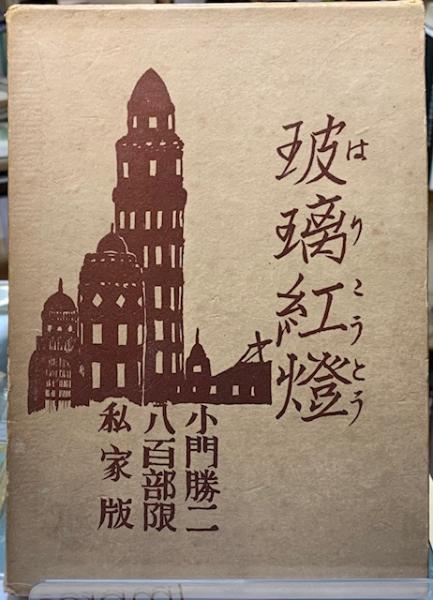 玻璃紅燈
はりこうとう
小門勝二
八百部限
私家版